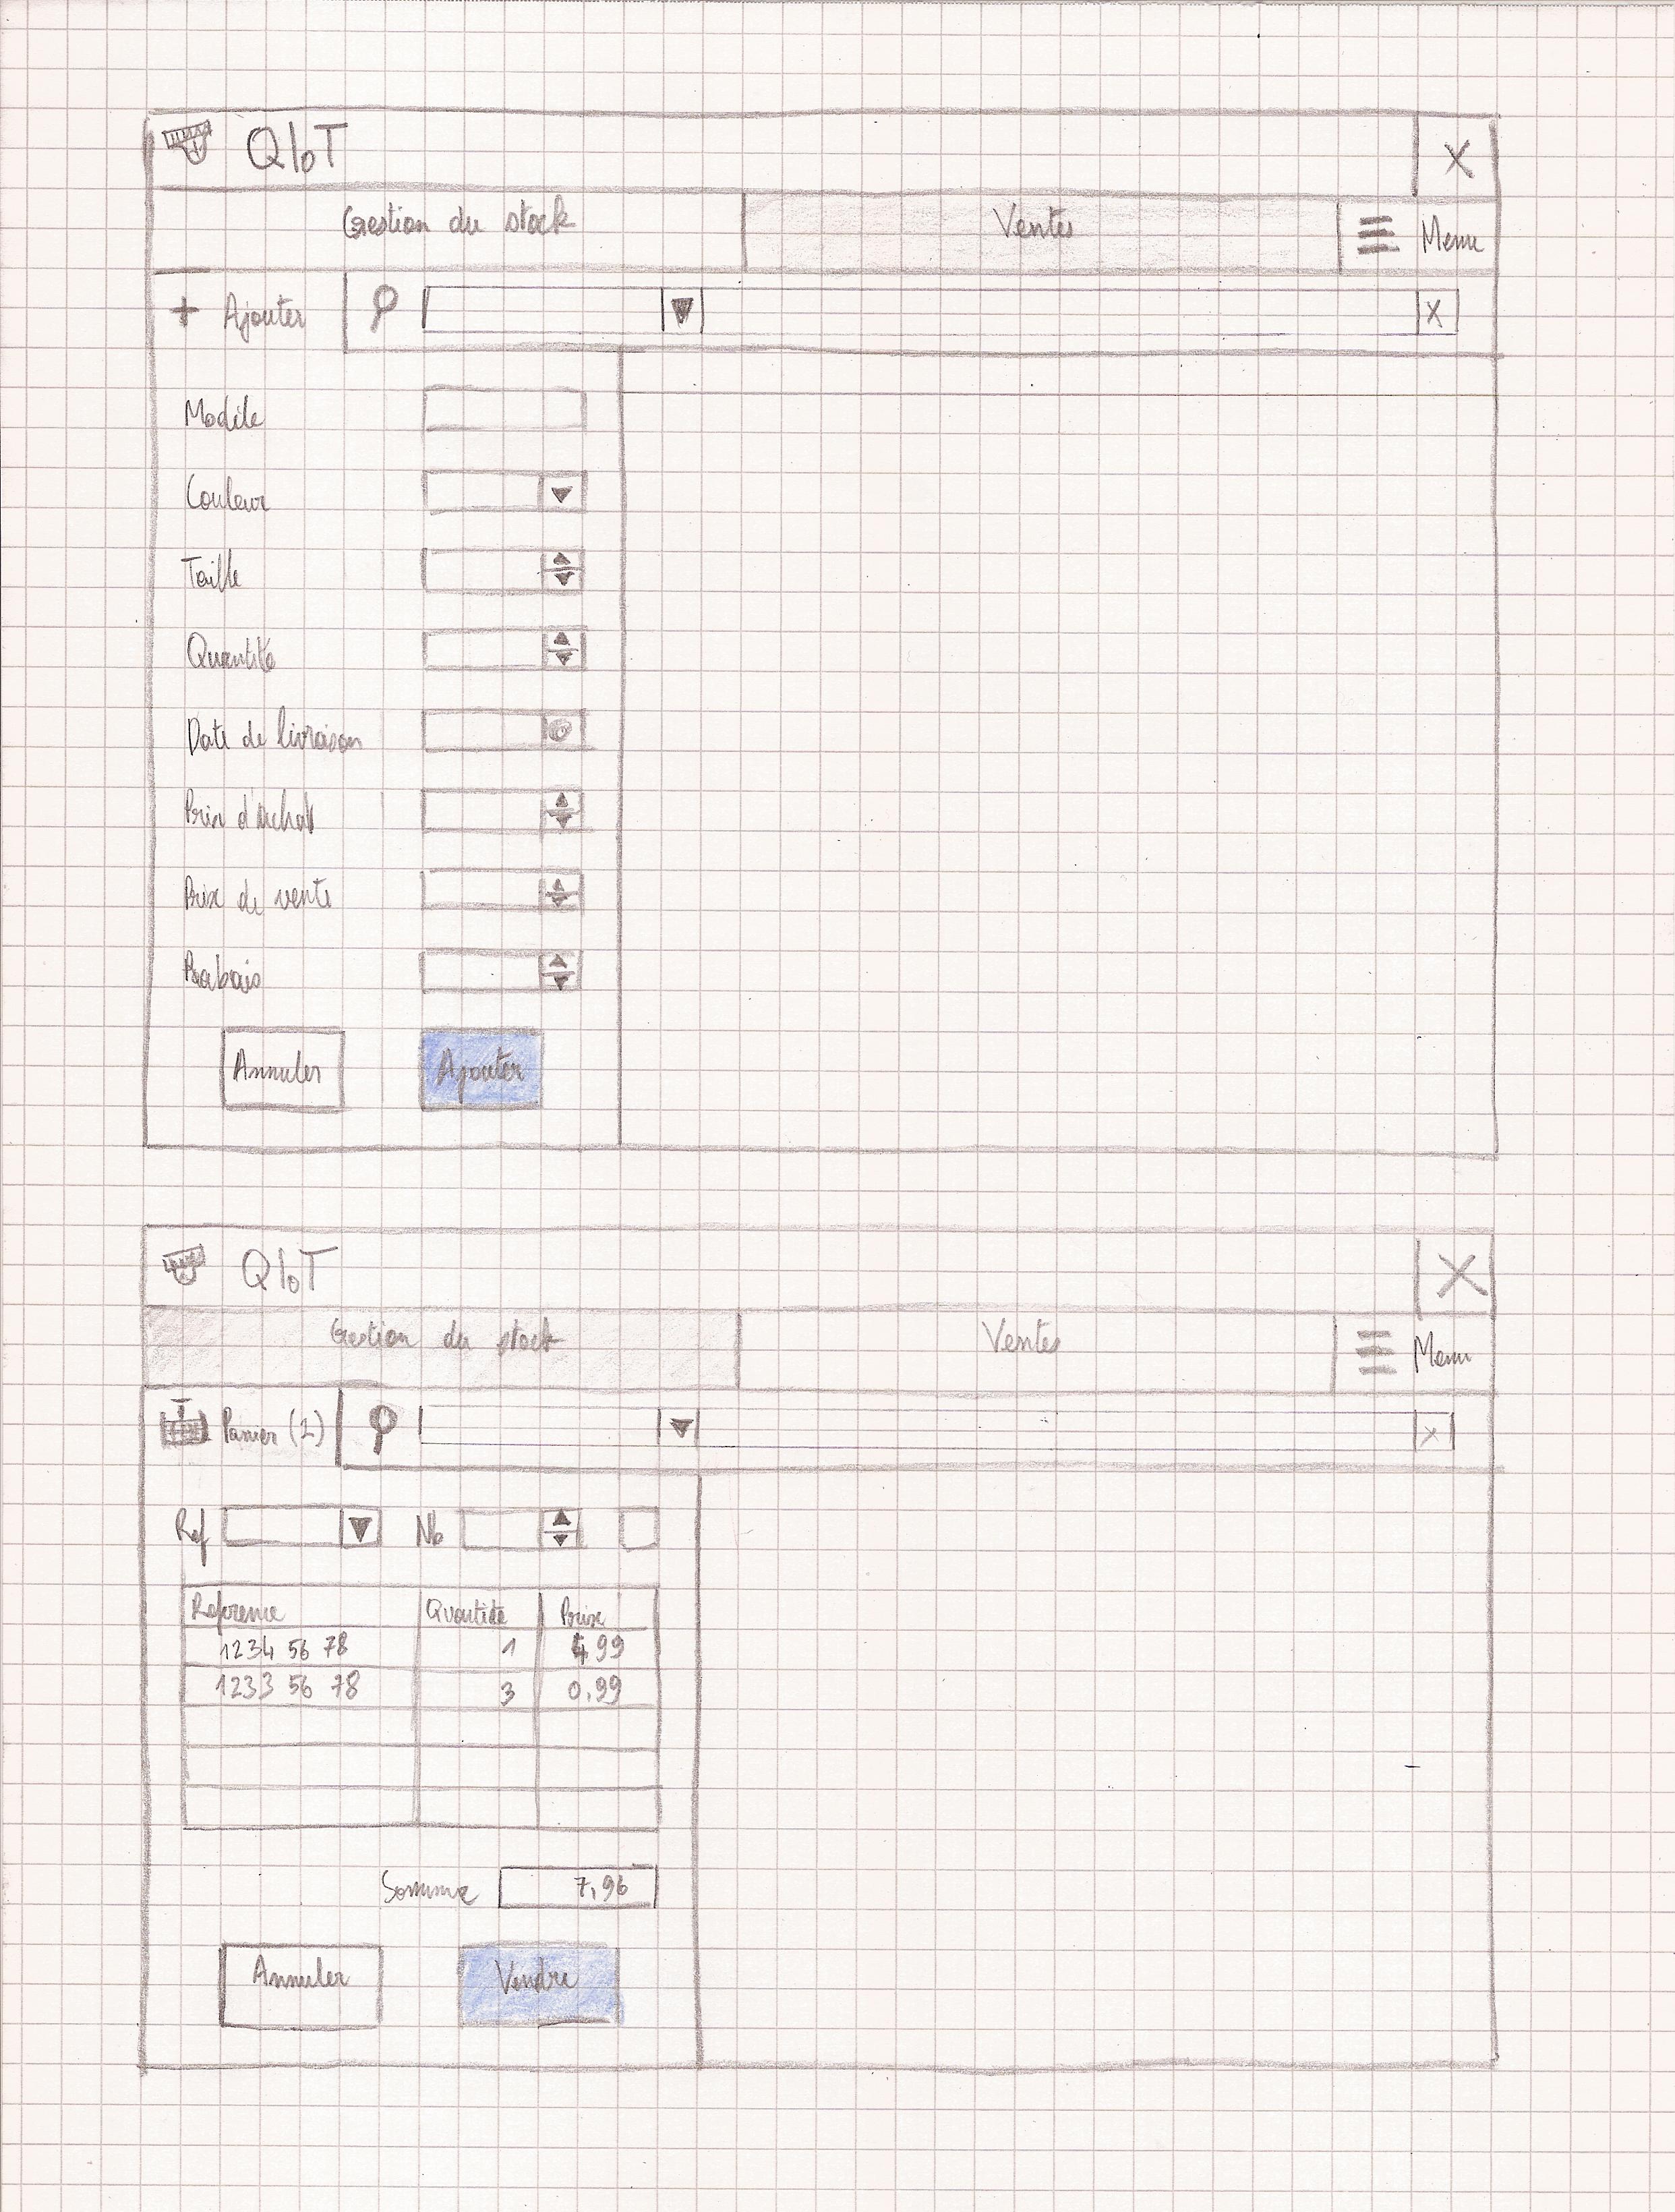 QIoT X
Gestion du stock Ventes Menu
+ Ajouter X
Modèle
Couleur
Taille
Quantité
Date de livraison
Prix d'achat
Prix de vente
Rabais
Annuler Ajouter
QIoT X
Gestion du stock Ventes Menu
Panier (2) x
Ref Nb
Reference Quantité Prix
1234 56 78 1 4,99
1233 56 78 3 0,99
Somme 7,96
Annuler Vendre